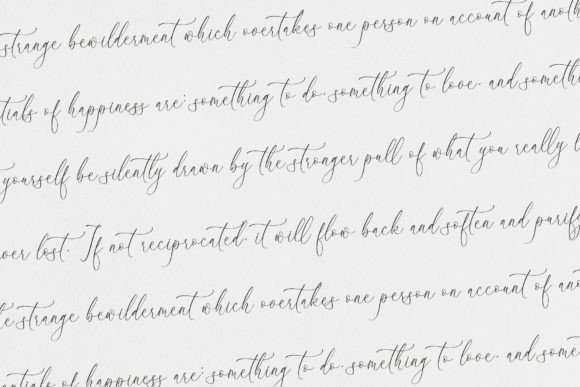 strange bewilderment which overtakes one person on account of anoth
tials of happiness are: something to do, something to love, and someth
yourself be silently drawn by the stronger pull of what you really l
ver lost. If not reciprocated, it will flow back and soften and purify
e strange bewilderment which overtakes one person on account of ano
entials of happiness are: something to do, something to love, and some